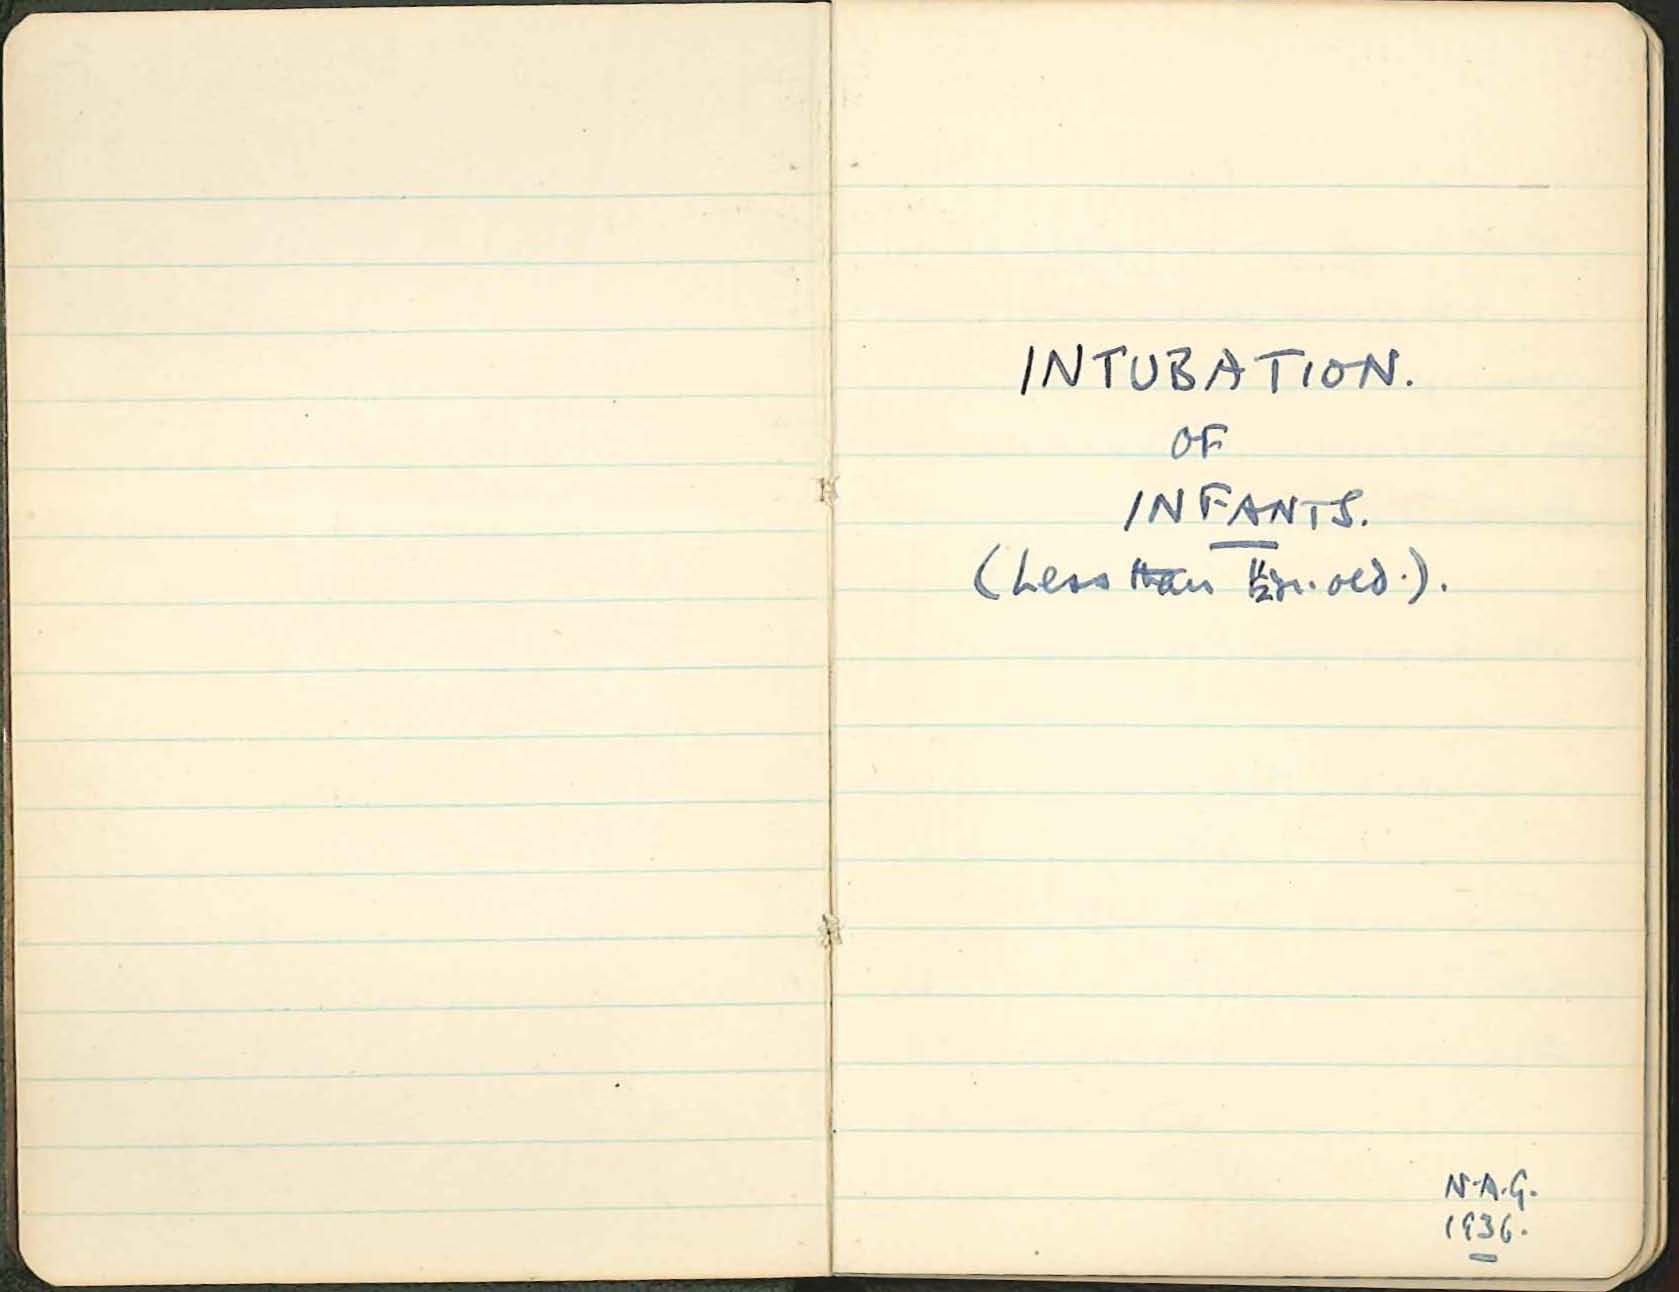 INTUBATION.
OF
INFANTS.
(Less than ½ yr. old.).
N.A.G.
1936.